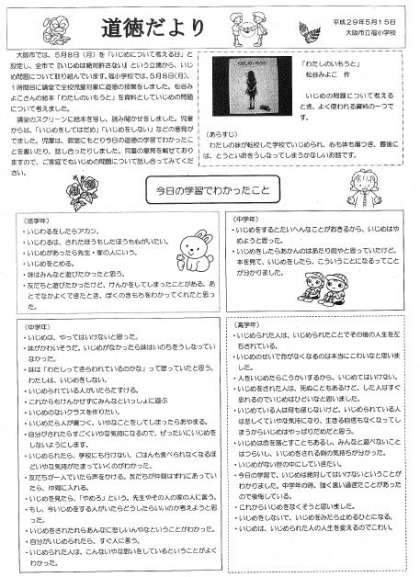 道徳だより
平成29年5月15日
大阪市立福小学校
大阪市では、5月8日（月）を「いじめについて考える日」と
設定し、全市で『いじめは絶対許さない』という立場から、いじ
め問題について取り組んでいます。福小学校では、5月8日(月)、
1時間目に講堂で全校児童対象に道徳の授業をしました。松谷み
よこさんの絵本「わたしのいもうと」を資料としていじめの問題
について考えました。
講堂のスクリーンに絵本を写し、読み聞かせをしました。児童
からは、「いじめをしてはだめ」「いじめをしない」などの意見が
でました。児童は、教室にもどり今日の道徳の学習でわかったこ
とを書いたり、話し合ったりしました。児童の意見を載せており
ますので、ご家庭でもいじめの問題について話し合ってみてくだ
さい。
「わたしのいもうと」
松谷みよこ 作
いじめの問題について考える
とき、よく使われる資料の一つで
す。
（あらすじ）
わたしの妹が転校した学校でいじめられ、心も体も傷つき、最後に
は、とうとう命をうしなってしまうかなしいお話です。
今日の学習でわかったこと
（低学年）
・いじわるをしたらアカン。
・いじわるは、されたほうもしたほうも心がいたい。
・いじめがあったら先生・家の人にいう。
・いじめをとめる。
・妹はみんなと遊びたかったと思う。
・友だちと遊びたかったけど、けんかをしてしまったことがある。あ
とでなかよくできたとき、ぼくのきもちをわかってくれたと思っ
た。
（中学年）
・いじめをするとたいへんなことがおきるから、いじめはや
めようと思った。
・いじめをしたらあかんのはあたり前やと思っていたけど、
本を見て、いじめをしたら、こういうことになるってこと
が分かりました。
（中学年）
・いじめは、やってはいけないと思った。
・妹がかわいそうだ。いじめがなかったら妹はいのちをうしなってい
なかった。
・妹は「わたしってきらわれているのかな」って思っていたと思う。
わたしは、いじめをしない。
・いじめられている人がいたらたすける。
・これからもけんかせずにみんなといっしょに遊ぶ
・いじめのないクラスを作りたい。
・いじめたら人が傷つく。いやなことをしてしまったらあやまる。
・自分がされたらすごくいやな気持になるので、ぜったいにいじめを
しないようにします。
・いじめられたら、学校にも行けない、ごはんも食べられなくなるほ
どいやな気持がたまっていくのがわかった。
・友だちが一人でいたら声をかける。友だちが仲間はずれにあってい
たら、仲間に入れる。
・いじめを見たら、「やめろ」という。先生やその人の家の人に言う。
・もし、今いじめをする人がいたらどうしたらいいのか考えようと思
った。
・いじめをされたらあんなに悲しいんやなということがわかった。
・自分がいじめられたら、すぐ人に言う。
・いじめられた人は、こんないやな思いをしているということがよく
わかった。
（高学年）
・いじめられた人は、いじめられたことでその後の人生を左
右されている。
・いじめのせいで命がなくなるのは本当にこわいなと思いま
した。
・人をいじめたらこうかいするから、いじめてはいけない。
・いじめをされた人は、死ぬこともあるけど、した人はすぐ
忘れるのでいじめはひどいなと思いました。
・いじめている人は何も感じないけど、いじめられている人
は悲しくていやな気持になり、生きる自信もなくなってし
まうからいじめはやっぱりだめだと思う。
・いじめは命を落とすこともあるし、みんなと遊べないこと
はつらいし、いじめをされる側の気持ちが分かった。
・いじめがない世の中にしていきたい。
・今日の学習で、いじめは絶対してはいけないということが
わかりました。中学年の時、強く言い過ぎたことがあった
ので後悔している。
・これからいじめをなくそうと思いました。
・いじめをしないで、いじめをみたら止めるひとになる。
・いじめは、いじめられた人の人生を変えるのでこわい。